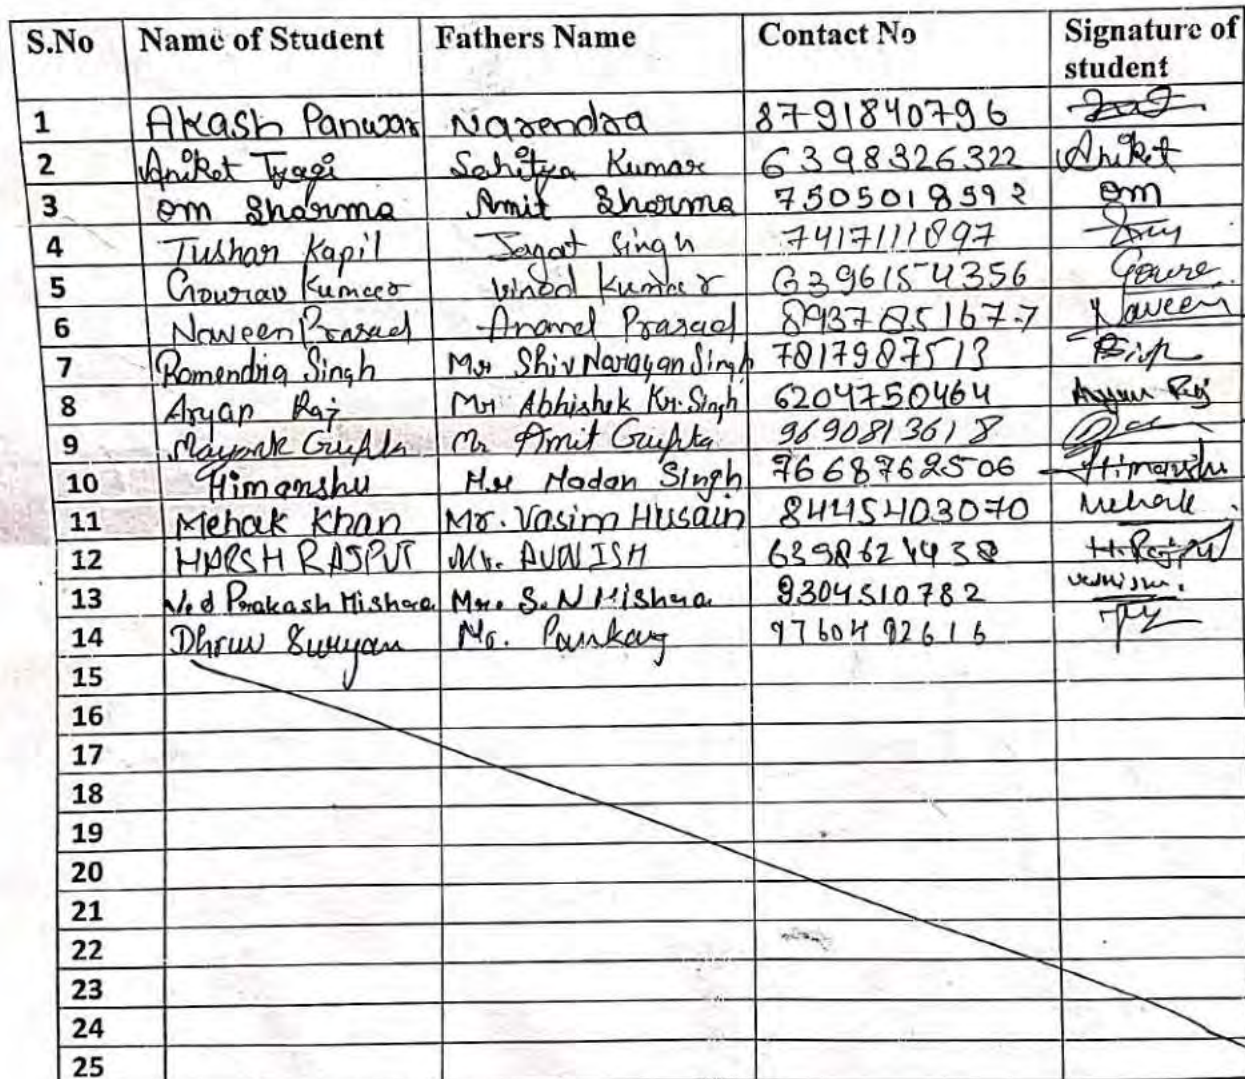 S.No Name of Student Fathers Name Contact No Signature of
student
1 Akash Panwar Narendra 8791840796
2 Aniket Tyagi Sahitya Kumar 6398326322 Aniket
3 om Sharma Amit Sharma 7505018592 om
4 Tushar Kapil Jagat Singh 7417111897
5 Gourav Kumar Vinod Kumar 6396154356
6 Naveen Prasad Anand Prasad 8937851677 Naveen
7 Ramendra Singh Mr Shiv Narayan Singh 7817987513
8 Aryan Raj Mr Abhishek Kr. Singh 6204750464 Aryan Raj
9 Mayank Gupta Mr Amit Gupta 9690813618
10 Himanshu Mr Madan Singh 7668762506 Himanshu
11 Mehak Khan Mr. Vasim Husain 8445403070 Mehak
12 HARSH RAJPUT Mr. AVNISH 6398624438 H.Rajput
13 Ved Prakash Mishra Mr. S.N Mishra 9304510782
14 Dhruv Suryan Mr. Pankaj 9760492616
15
16
17
18
19
20
21
22
23
24
25